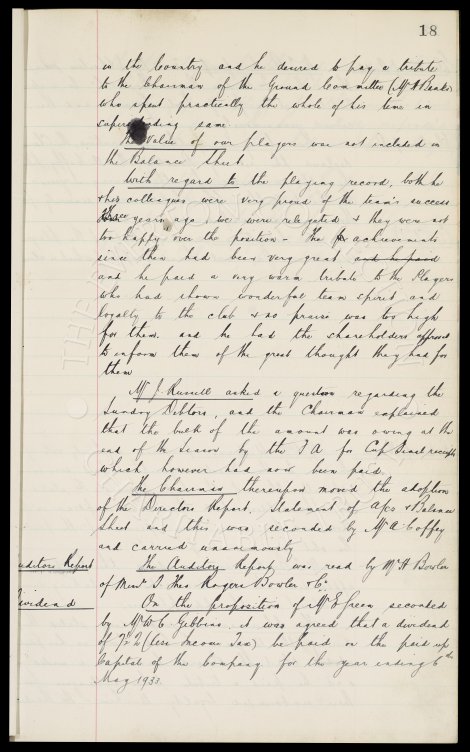 18
in the Country and he desired to pay a tribute
to the Chairman of the Ground Committee (Mr A Banks)
who spent practically the whole of his time in
The Value of our players was not included in
the Balance Sheet
With regard to the playing record, both he
& his colleagues were very proud of the team's success
Three years ago, we were relegated & they were not
too happy over the position - The achievements
since then had been very great and he paid
and he paid a very warm tribute to the Players
who had shown wonderful team spirit and
loyalty to the club & no praise was too high
for them. and he had the shareholders
to inform them of the great thought they had for
them
Mr J. Russell asked a question regarding the
Sundry Debtors, and the Chairman explained
that the bulk of the amount was owing at the
end of the Season by the F A for Cup Final receipts
which however had now been paid.
The Chairman thereupon moved the adoption
of the Directors Report, Statement of A/cs & Balance
Sheet and this was seconded by Mr A. Coffey
and carried unanimously
uditors Report
The Auditors Report was read by Mr H Bowler
of Theo Rogers Bowler & Co.
ividend
On the proposition of Mr E Green seconded
by Mr W. C. Gibbins, it was agreed that a dividend
of 7½ (less Income Tax) be paid on the paid up
Capital of the Company for the year ending 6th
May 1933.